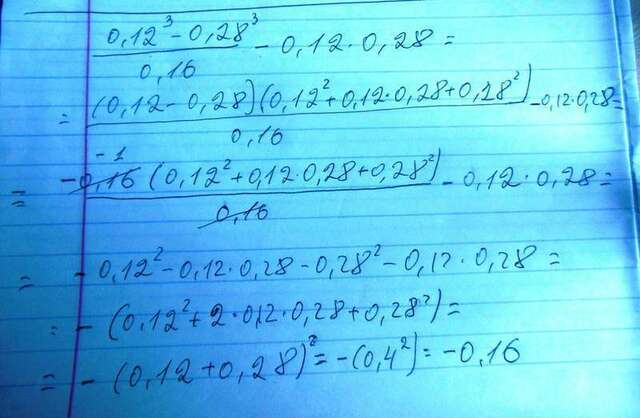 0,12³ - 0,28³ / 0,16 - 0,12 · 0,28 =
= (0,12 - 0,28)(0,12² + 0,12 · 0,28 + 0,28²) / 0,16 - 0,12 · 0,28 =
= -0,16 -1 (0,12² + 0,12 · 0,28 + 0,28²) / 0,16 - 0,12 · 0,28 =
= - 0,12² - 0,12 · 0,28 - 0,28² - 0,12 · 0,28 =
= - (0,12² + 2 · 0,12 · 0,28 + 0,28²) =
= - (0,12 + 0,28)² = -(0,4²) = -0,16